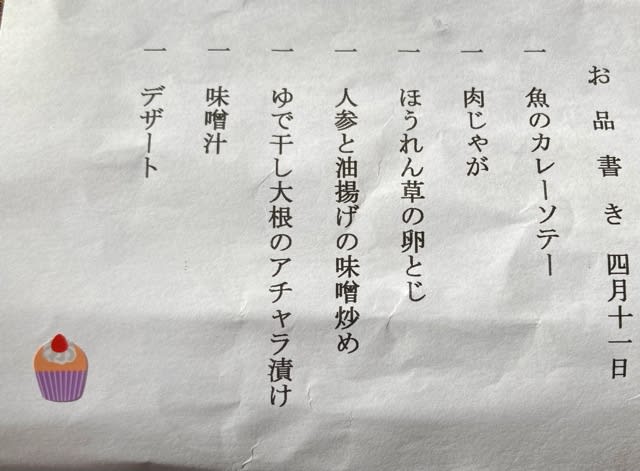 お品書き 四月十一日
一 魚のカレーソテー
一 肉じゃが
一 ほうれん草の卵とじ
一 人参と油揚げの味噌炒め
一 ゆで干し大根のアチャラ漬け
一 味噌汁
一 デザート